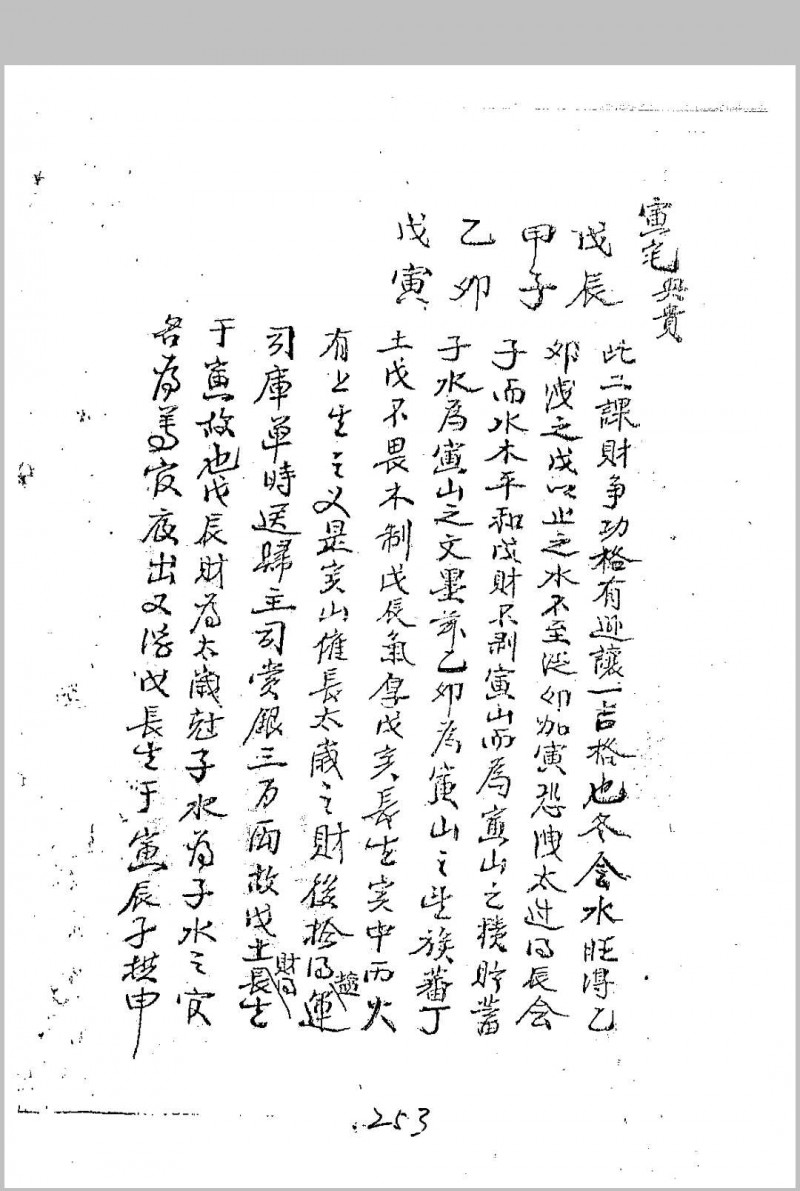 寅宅興貴
戊辰
甲子
乙卯
戊寅
此二課財爭功格有遜讓一吉格也冬令水旺得乙
卯洩之戊以止之水不至泛卯加寅恐洩太过得辰会
子而水木平和戊財不剥寅山而為寅山之積貯蓄
子水為寅山之文墨乙卯為寅山之族蕃丁
土戊不畏木制戊辰氣厚戊亥長生寅中丙火
有上生之义是寅山催長太歲之財後拾得運
司庫單時送歸主司赏銀三万两故戊土長生
財得
于寅故也戊辰財為太歲尅子水为子水之官
名为官夜出又得戊長生于寅辰子拱申
253